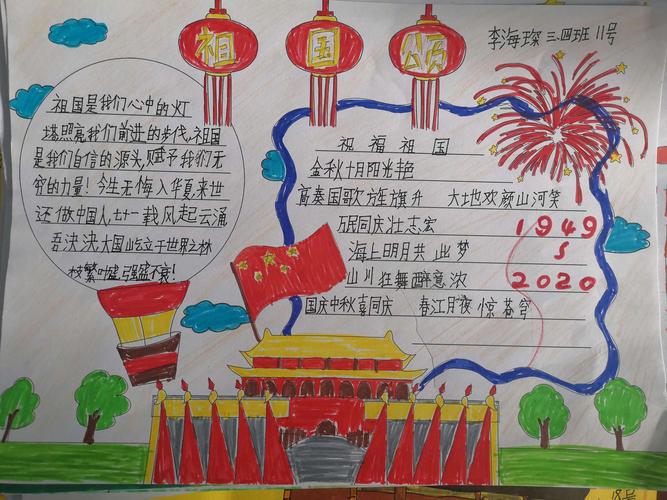 祖国颂
李海琛 三.四班 11号
祖国是我们心中的灯
塔照亮我们前进的步代,祖国
是我们自信的源头,赋予我们无
穷的力量!今生无悔入华夏,来世
还做中国人,七十一载风起云涌
吾泱泱大国屹立于世界之林
枝繁叶虚强盛不衰!
祝福祖国
金秋十月阳光艳
高奏国歌旗升 大地欢颜山河笑
民同庆壮志宏
1949
海上明月共此梦
山川狂舞醉意浓
2020
国庆中秋喜同庆 春江月夜惊苍穹
18号